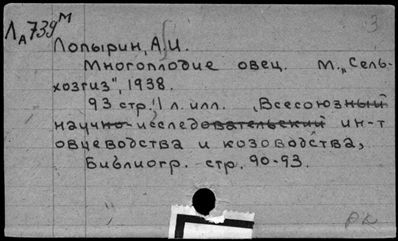 Лд739м
3
Лопырин, А.И.
Многоплодие овец. М., „Сель-
хозгиз", 1938.
93 стр. 1 л. илл. „Всесоюзный
научно-исследовательский ин-т
овцеводства и козоводства„
Библиогр. стр. 90-93.